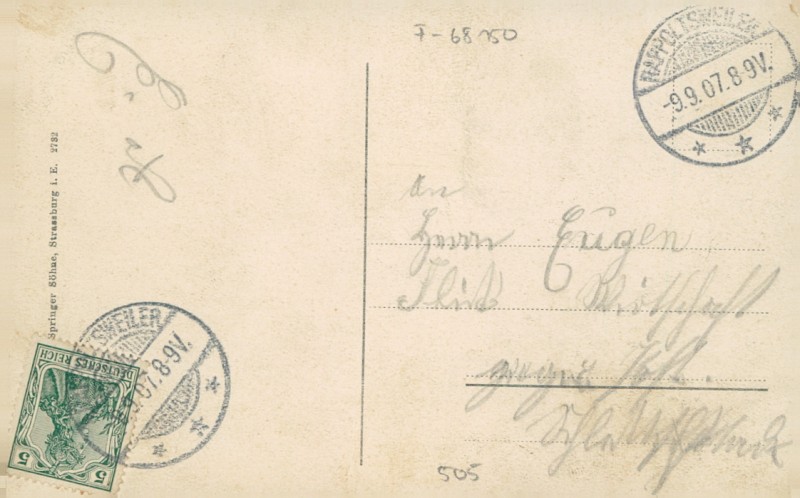 F-68150
RAPPOLTSWEILER
-9.9.07.8-9V.
Springer Söhne, Strassburg i. E. 2732
An
Herrn Eugen
Flick Wirtschaft
SWEILER
9.07.8-9V.
DEUTSCHES REICH
5 5
505